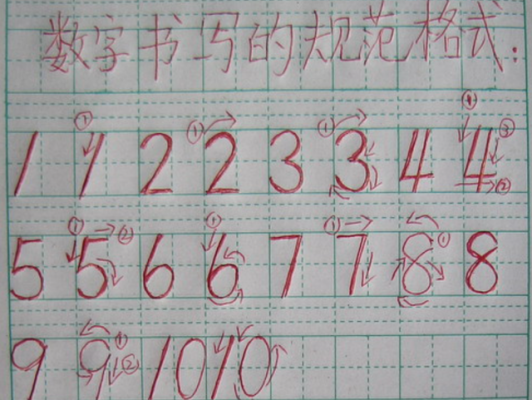 数字书写的规范格式:
1 ①1 2 ①2 3 ①3 4 ①4②③
5 ①5② 6 ①6 7 ①7 8① 8
9 9①② 10 10